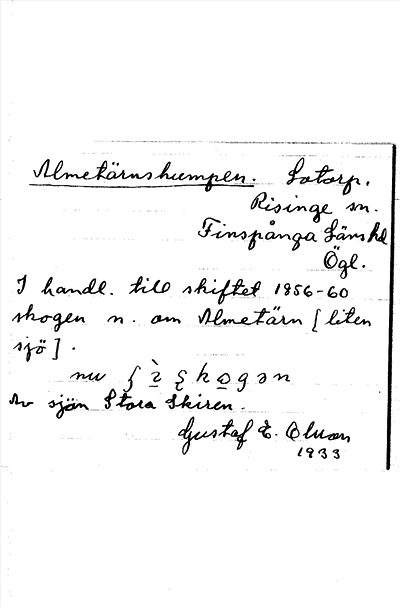 Almetärnshumpen. Lotorp.
Risinge sn.
Finspånga Läns hd
Ögl.
I handl. till skiftet 1856-60
skogen n. om Almetärn [liten
sjö].
nu
Av sjön Stora Skiren.
Gustaf E. Olson
1933